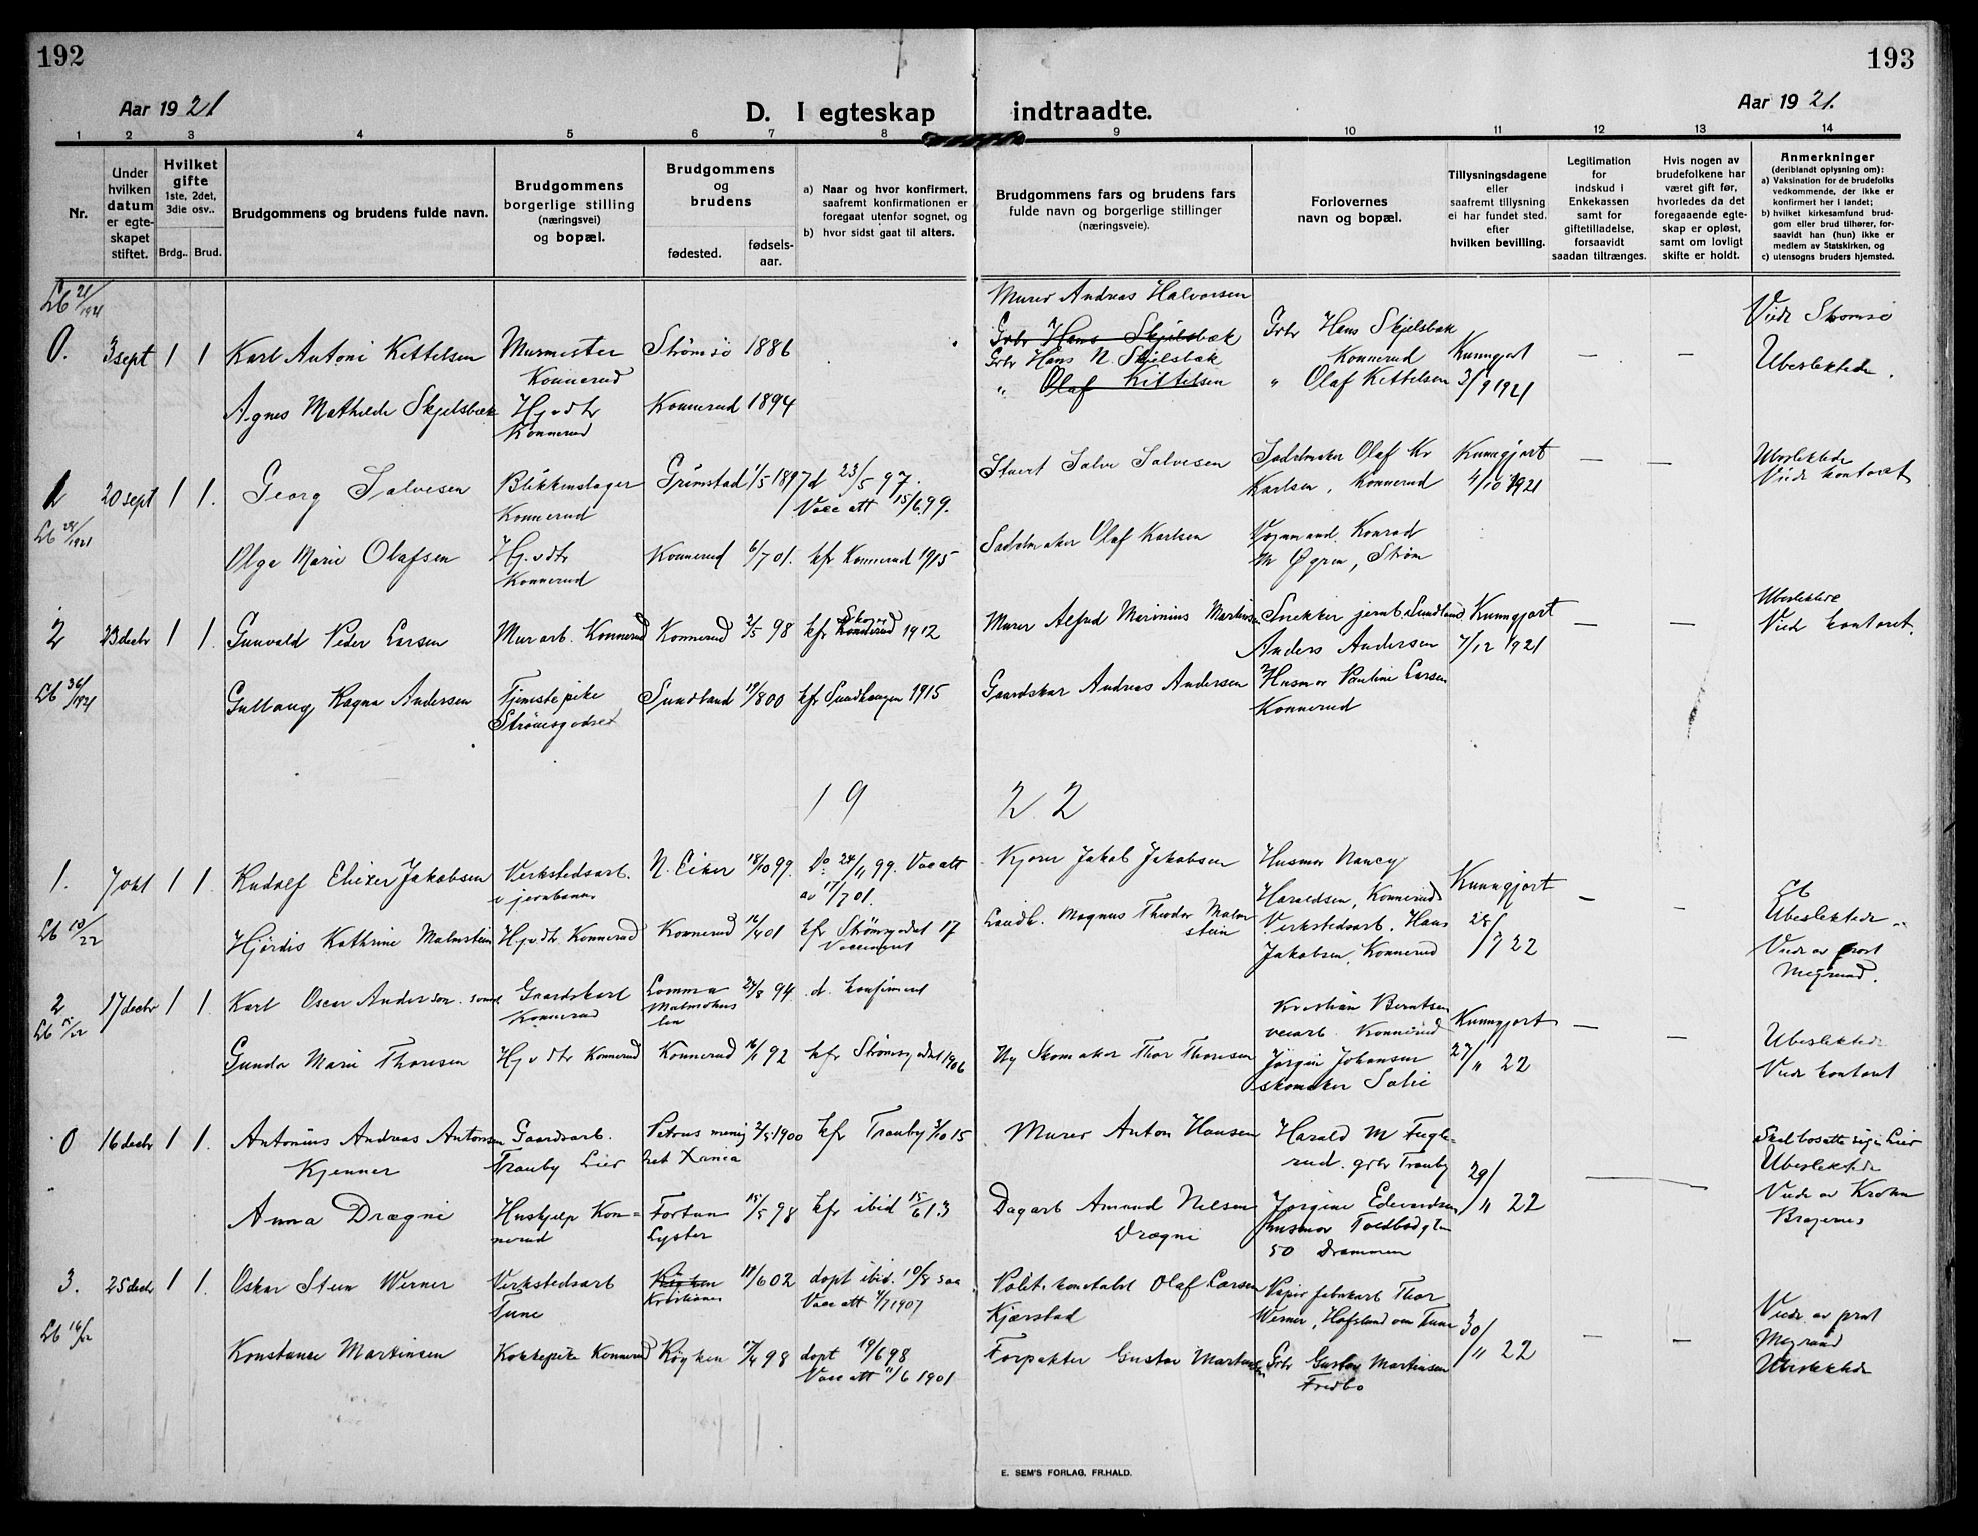 192
193
Aar 1921
D. I egteskap indtraadte.
Aar 1921.
1 2 3 4 5 6 7 8 9 10 11 12 13 14
Nr.
Under hvilken datum er egteskapet stiftet.
Hvilket gifte 1ste, 2det, 3die osv..
Brdg.. Brud.
Brudgommens og brudens fulde navn.
Brudgommens borgerlige stilling (næringsvei) og bopæl.
Brudgommens og brudens
fødested.
fødsels-aar.
a) Naar og hvor konfirmert, saafremt konfirmationen er foregaat utenfor sognet, og
b) hvor sidst gaat til alters.
Brudgommens fars og brudens fars fulde navn og borgerlige stillinger (næringsveie).
Forlovernes navn og bopæl.
Tillysningsdagene eller saafremt tillysning ei har fundet sted. efter hvilken bevilling.
Legitimation for indskud i Enkekassen samt for giftetilladelse, forsaavidt saadan tiltrænges.
Hvis nogen av brudefolkene har været gift før, hvorledes da det foregaaende egteskap er opløst, samt om lovligt skifte er holdt.
Anmerkninger (deriblandt oplysning om):
a) Vaksination for de brudefolks vedkommende, der ikke er konfirmert her i landet;
b) hvilket kirkesamfund brudgom eller brud tilhører, forsaavidt han (hun) ikke er medlem av Statskirken, og
c) utensogns bruders hjemsted.
Lb 21/1921
Murer Andreas Halvorsen
Viede Strømsø
0. 3 sept 1 1 Karl Antoni Kittelsen Murmester Konnerud Strømsø 1886
Grbr Hans Skjelsbæk
Grbr Hans N. Skjelsbæk
" Olaf Kittelsen
Grbr Hans Skjelsbæk Konnerud
" Olaf Kittelsen
Kunngjort 3/9 1921 — —
Ubeslektede.
Agnes Mathilde Skjelsbæk Hj.v.dtr Konnerud Konnerud 1894
1 20 sept 1 1. Georg Salvesen Blikkenslager Konnerud Grimstad 1/5 1897 d 23/5 97. Vacc att 15/6 99.
Stuert Salve Salvesen
Sadelmaker Olaf Kr Karlsen, Konnerud
Kunngjort 4/10 1921 — —
Ubeslektede Viede kontoret
Lb 24/1921
Olga Marie Olafsen Hj.v.dtr Konnerud Konnerud 6/7 01. kfr Konnerud 1915
Sadelmaker Olaf Karlsen
Vognmand Konrad M Øgren, Strøm
2 23 decbr 1 1. Gunvald Peder Larsen Murarb. Konnerud Konnerud 2/5 98 kfr Konnerud Skoger 1912
Murer Alfred Marinius Martinsen
Snekker jernb. Sundland Anders Andersen
Kunngjort 7/12 1921 — —
Ubeslektede Viede kontoret.
Lb 36/1921
Gullaug Ragna Andersen Tjenestepike Strømsgodset Sundland 19/8 00 kfr Sundhaugen 1915
Gaardskar Andreas Andersen
Husmor Pauline Larsen Konnerud
19 22
1. 7 okt 1 1. Rudolf Eliezer Jakobsen Verkstedsarb. v jernbanen N. Eiker 18/10 99. Dø: 24/11 99. Vacc att av 17/7 01.
Kjører Jakob Jakobsen
Husmor Nancy Haraldsen, Konnerud
Kunngjort 28/9 22 — —
Lb Ubeslektede
Lb 10/22
Hjørdis Kathrine Malmstein Hj.v.dtr. Konnerud Konnerud 16/4 01 kfr Strømsgodset 17 Vaccinert
Landh. Magnus Theodor Malmstein
Verkstedsarb. Hans Jakobsen, Konnerud
Viede av prost Megrund.
2 17 decbr 1 1. Karl Oscar Anderson Gaardskarl Konnerud Lomma Malmøhus len 24/8 94 d. konfirmert
Kristian Berntsen veiarb. Konnerud
Kunngjort 27/11 22 — —
Ubeslektede
Gunda Marie Thoresen Hj.v.dtr Konnerud Konnerud 16/1 92 kfr Strømsgodset 1906
Ny Skomaker Thor Thoresen
Jørgin Johansen skomaker Solie
Viede kontoret
0 16 decbr 1 1. Antonius Andreas Antonsen Kjenner Gaardsarb. Tranby Lier Petrus menighet Xania 2/5 1900 kfr Tranby 3/10 15
Murer Anton Hansen
Harald M Fuglerud. grbr Tranby
29/11 22
Skal bosætte sig i Lier Ubeslektede
Anna Drægni Hushjelp Konnerud Fortun Lyster 15/5 98 kfr ibid 15/6 13
Dagarb Amund Nilsen Drægni
Jørgine Edvardsen husmor Toldbodgten 50 Drammen
Viede av Krohn Bragernes
3. 25 decbr 1 1. Oskar Stein Werner Verkstedsarb Tune Røyken Kristiania 18/6 02 døpt ibid. 10/8 saa Vacc att 4/7 1907
Politikonstabel Olaf Larsen Kjærstad
Papirfabrikarb Thor Werner, Hafslund om Tune
30/11 22 — —
Viede av prost Megrund Ubeslektede
Lb 16/22
Konstanse Martinsen Kokkepike Konnerud Røyken 17/4 98 døpt 19/6 98 Vacc att 11/6 1901
Forpakter Gustav Martinsen
Grbr Gustav Martinsen Fredbo
E. SEM'S FORLAG, FR.HALD.